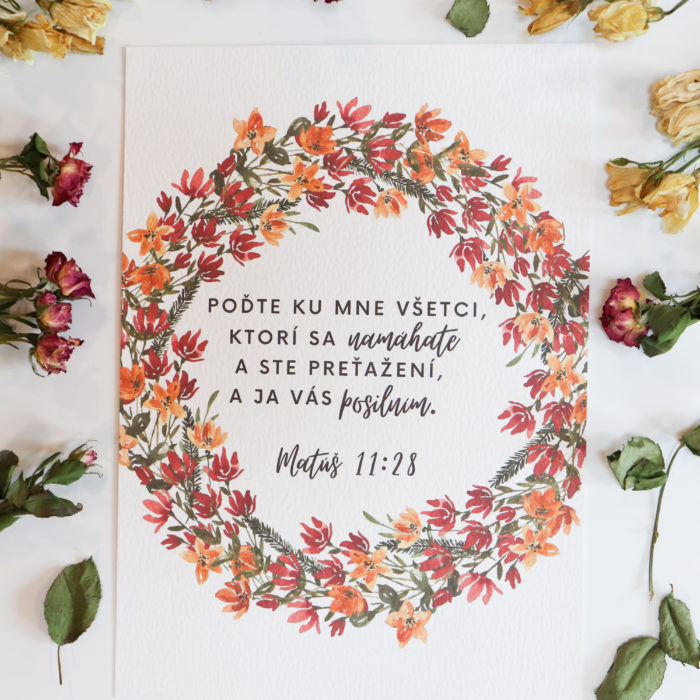 POĎTE KU MNE VŠETCI,
KTORÍ SA namáhate
A STE PREŤAŽENÍ,
A JA VÁS posilním.
Matúš 11:28